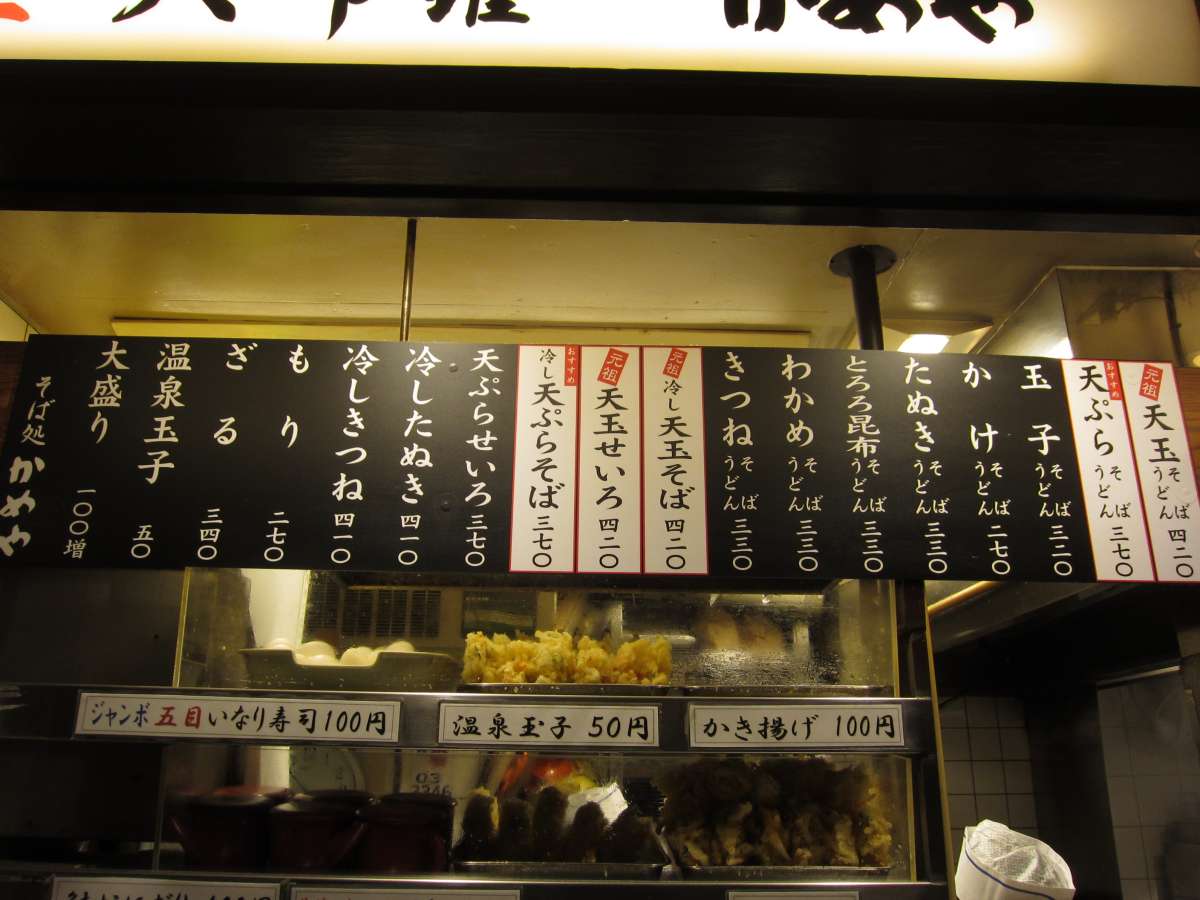 かめや
元祖 天玉 そば うどん 四二〇
おすすめ 天ぷら そば うどん 三七〇
玉子 そば うどん 三二〇
かけ そば うどん 二七〇
たぬき そば うどん 三三〇
とろろ昆布 そば うどん 三三〇
わかめ そば うどん 三三〇
きつね そば うどん 三三〇
元祖 冷し天玉そば 四二〇
元祖 天玉せいろ 四二〇
おすすめ 冷し天ぷらそば 三七〇
天ぷらせいろ 三七〇
冷したぬき 四一〇
冷しきつね 四一〇
もり 二七〇
ざる 三四〇
温泉玉子 五〇
大盛り 一〇〇増
そば処 かめや
ジャンボ五目いなり寿司100円
温泉玉子 50円
かき揚げ 100円
03